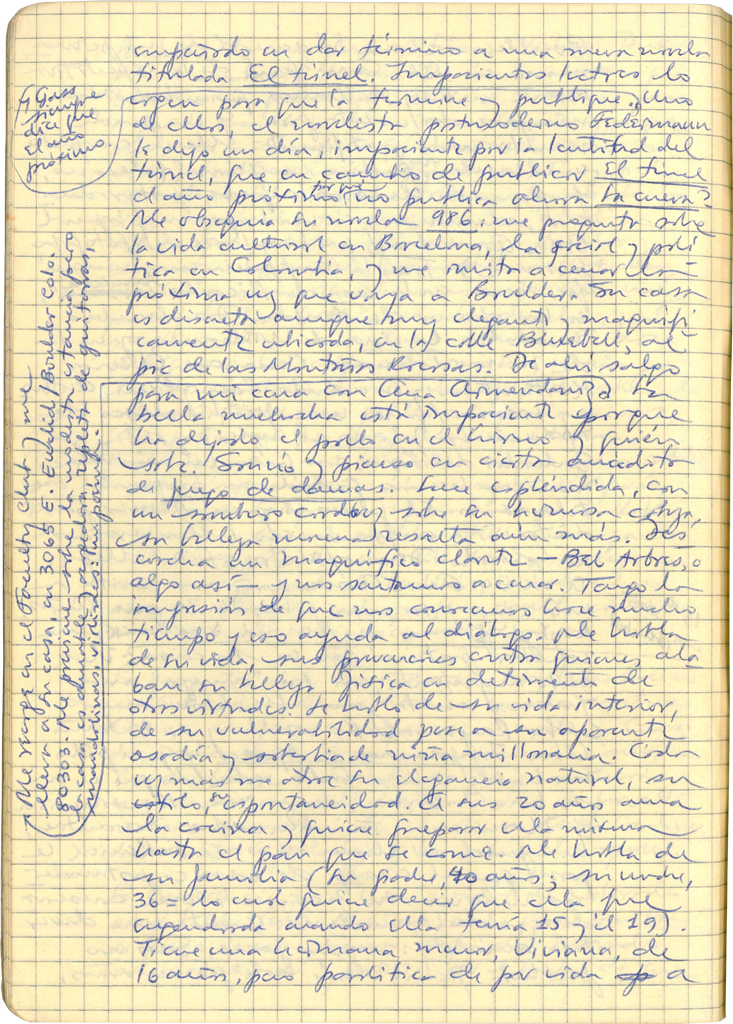 empeñado en dar término a una nueva novela
titulada El túnel. Impacientes lectores lo
urgen para que la termine y publique. Uno
de ellos, el novelista postmoderno Federmann
le dijo un día, impaciente por la lentitud del
túnel, que en cambio de publicar El túnel
el año próximo por qué no publica ahora La cueva?
Me obsequia su novela 986: me pregunta sobre
la vida cultural en Barcelona, la social y polí
tica en Colombia, y me invita a cenar la
próxima vez que vaya a Boulder. Su casa
es discreta aunque muy elegante y magnífi
camente ubicada, en la calle Bluebell, al
pie de las Montañas Rocosas. De ahí salgo
para mi cena con Ana Armendariz. La
bella muchacha está impaciente porque
ha dejado el pollo en el horno y quién
sabe. Sonrío y pienso en cierta anécdota
de juego de damas. Luce espléndida, con
un sombrero cordobéz sobre su hermosa cabeza,
su belleza morena resalta aún más. Des
corcha un magnífico clarete — Bel Arbres, o
algo así — y nos sentamos a cenar. Tengo la
impresión de que nos conocemos hace mucho
tiempo y eso ayuda al diálogo. Me habla
de su vida, sus prevenciones contra quienes ala
ban su belleza física en detrimento de
otras virtudes. Se habla de su vida interior,
de su vulnerabilidad pese a su aparente
osadía y soberbia de niña millonaria. Cada
vez más me atrae su elegancia natural, su
estilo, su espontaneidad. A sus 20 años ama
la cocina y quiere preparar ella misma
hasta el pan que se come. Me habla de
su familia (su padre, 40 años; su madre,
36 = lo cual quiere decir que ella fue
engendrada cuando ella tenía 15 y él 19).
Tiene una hermana menor, Viviana, de
16 años, pero paralítica de por vida a
↑ Gass
siempre
dice que
el año
próximo.
↗ Me recoge en el Faculty Club y me
lleva a su casa, en 3065 E. Euclid / Boulder Colo.
80303. Me previene sobre la modesta estancia pero
la casa es amable y acogedora, repleta de guitarras,
mandolinas,